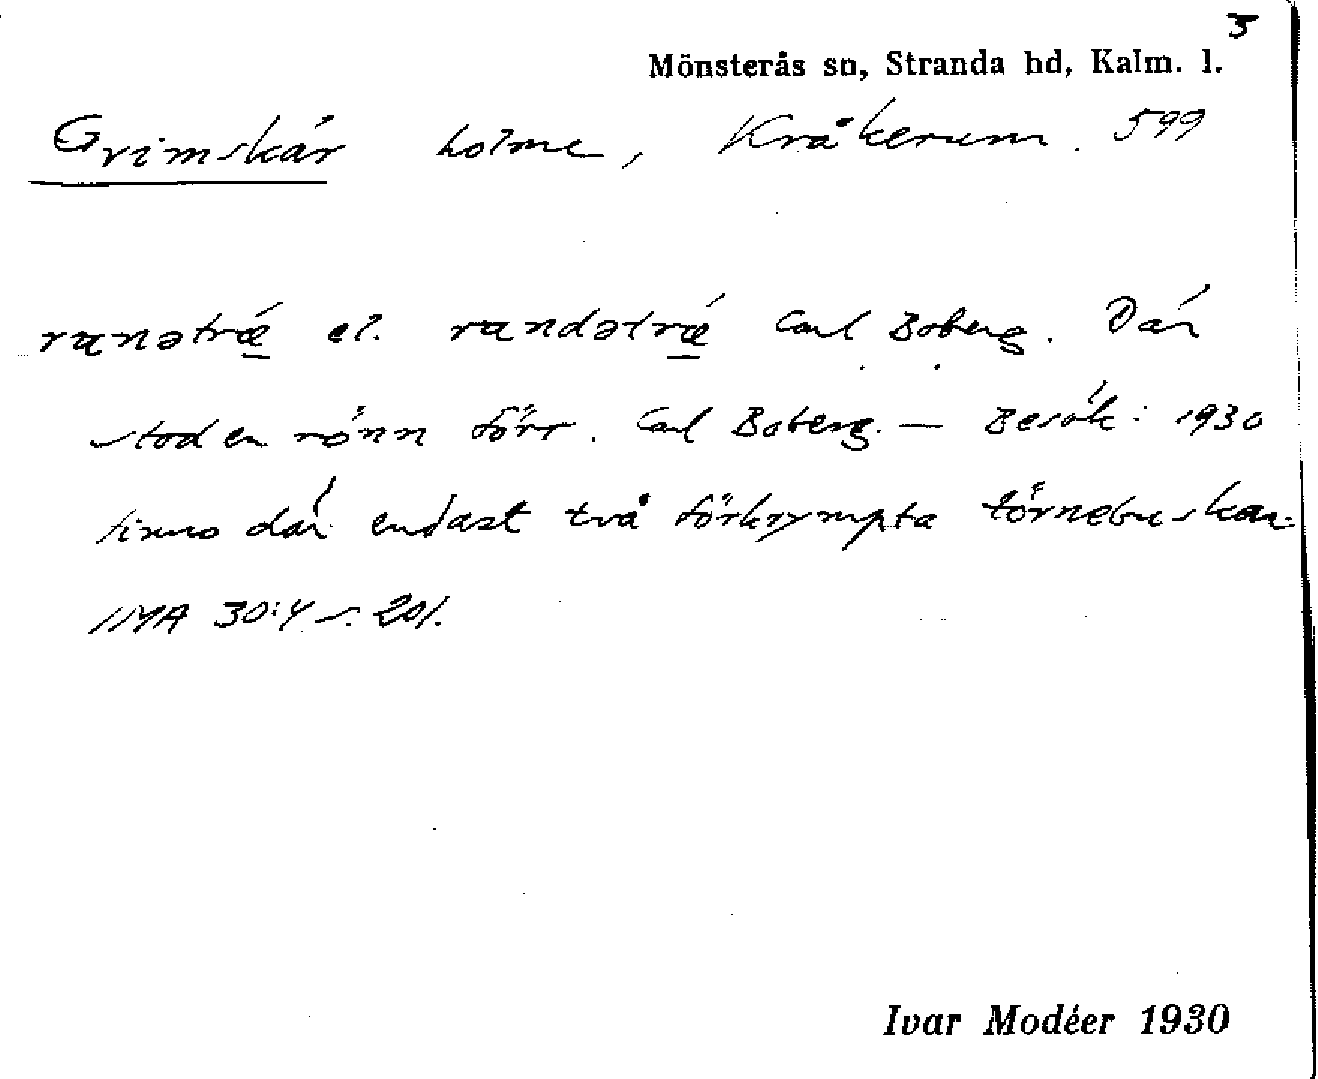 3
Mönsterås sn, Stranda hd, Kalm. l.
Grimskär holme, Kråkerum. 599
ranətræ el. randətræ Carl Boberg. Där
stod en rönn förr. Carl Boberg. — Besök: 1930
finns där endast två förkrympta törnebuskar.
IMA 30:4 s. 201.
Ivar Modéer 1930